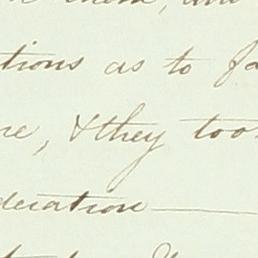 them, and
tions as to fa
re, & they too
deration